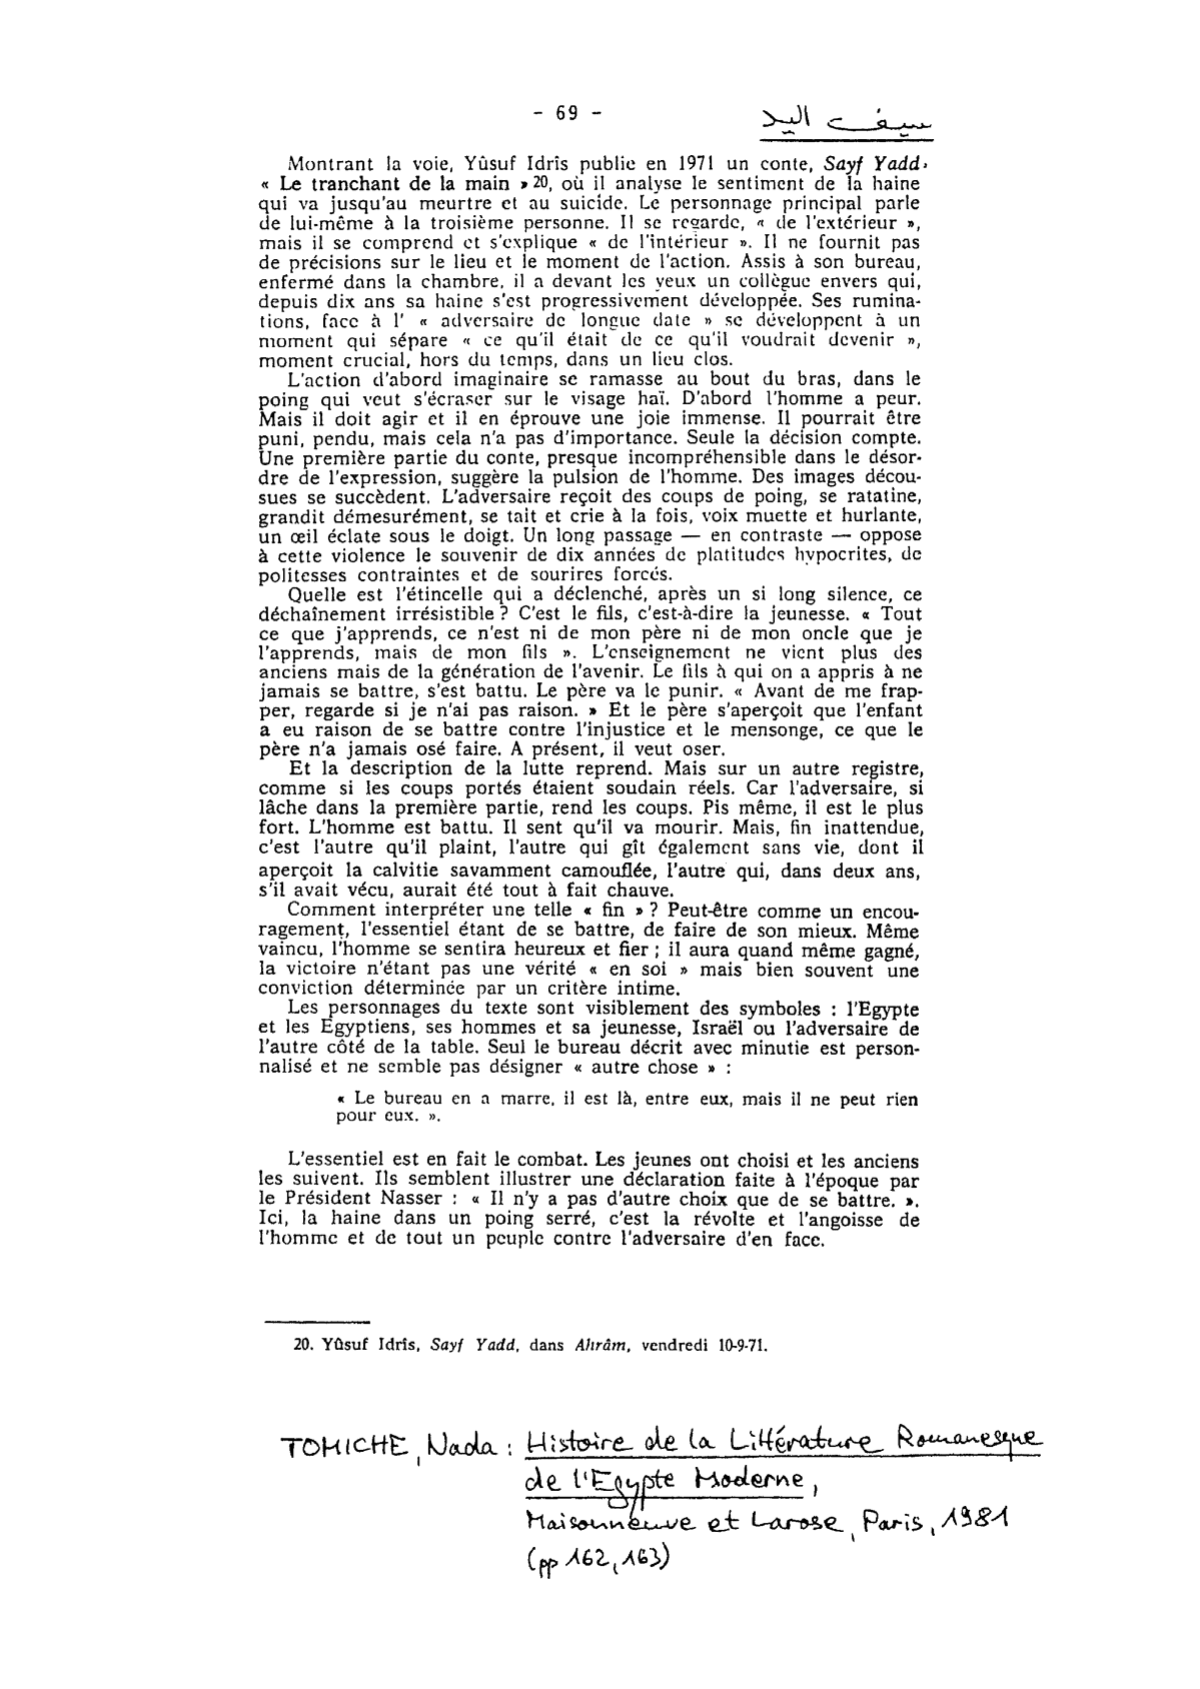 - 69 -
سيف اليد
Montrant la voie, Yûsuf Idrîs publie en 1971 un conte, Sayf Yadd,
« Le tranchant de la main » 20, où il analyse le sentiment de la haine
qui va jusqu'au meurtre et au suicide. Le personnage principal parle
de lui-même à la troisième personne. Il se regarde, « de l'extérieur »,
mais il se comprend et s'explique « de l'intérieur ». Il ne fournit pas
de précisions sur le lieu et le moment de l'action. Assis à son bureau,
enfermé dans la chambre, il a devant les yeux un collègue envers qui,
depuis dix ans sa haine s'est progressivement développée. Ses rumina-
tions, face à l' « adversaire de longue date » se développent à un
moment qui sépare « ce qu'il était de ce qu'il voudrait devenir »,
moment crucial, hors du temps, dans un lieu clos.
L'action d'abord imaginaire se ramasse au bout du bras, dans le
poing qui veut s'écraser sur le visage haï. D'abord l'homme a peur.
Mais il doit agir et il en éprouve une joie immense. Il pourrait être
puni, pendu, mais cela n'a pas d'importance. Seule la décision compte.
Une première partie du conte, presque incompréhensible dans le désor-
dre de l'expression, suggère la pulsion de l'homme. Des images décou-
sues se succèdent. L'adversaire reçoit des coups de poing, se ratatine,
grandit démesurément, se tait et crie à la fois, voix muette et hurlante,
un œil éclate sous le doigt. Un long passage — en contraste — oppose
à cette violence le souvenir de dix années de platitudes hypocrites, de
politesses contraintes et de sourires forcés.
Quelle est l'étincelle qui a déclenché, après un si long silence, ce
déchaînement irrésistible ? C'est le fils, c'est-à-dire la jeunesse. « Tout
ce que j'apprends, ce n'est ni de mon père ni de mon oncle que je
l'apprends, mais de mon fils ». L'enseignement ne vient plus des
anciens mais de la génération de l'avenir. Le fils à qui on a appris à ne
jamais se battre, s'est battu. Le père va le punir. « Avant de me frap-
per, regarde si je n'ai pas raison. » Et le père s'aperçoit que l'enfant
a eu raison de se battre contre l'injustice et le mensonge, ce que le
père n'a jamais osé faire. A présent, il veut oser.
Et la description de la lutte reprend. Mais sur un autre registre,
comme si les coups portés étaient soudain réels. Car l'adversaire, si
lâche dans la première partie, rend les coups. Pis même, il est le plus
fort. L'homme est battu. Il sent qu'il va mourir. Mais, fin inattendue,
c'est l'autre qu'il plaint, l'autre qui gît également sans vie, dont il
aperçoit la calvitie savamment camouflée, l'autre qui, dans deux ans,
s'il avait vécu, aurait été tout à fait chauve.
Comment interpréter une telle « fin » ? Peut-être comme un encou-
ragement, l'essentiel étant de se battre, de faire de son mieux. Même
vaincu, l'homme se sentira heureux et fier ; il aura quand même gagné,
la victoire n'étant pas une vérité « en soi » mais bien souvent une
conviction déterminée par un critère intime.
Les personnages du texte sont visiblement des symboles : l'Egypte
et les Egyptiens, ses hommes et sa jeunesse, Israël ou l'adversaire de
l'autre côté de la table. Seul le bureau décrit avec minutie est person-
nalisé et ne semble pas désigner « autre chose » :
« Le bureau en a marre, il est là, entre eux, mais il ne peut rien
pour eux. ».
L'essentiel est en fait le combat. Les jeunes ont choisi et les anciens
les suivent. Ils semblent illustrer une déclaration faite à l'époque par
le Président Nasser : « Il n'y a pas d'autre choix que de se battre. ».
Ici, la haine dans un poing serré, c'est la révolte et l'angoisse de
l'homme et de tout un peuple contre l'adversaire d'en face.
20. Yûsuf Idrîs, Sayf Yadd, dans Ahrâm, vendredi 10-9-71.
TOMICHE, Nada : Histoire de la Littérature Romanesque
de l'Egypte Moderne,
Maisonneuve et Larose, Paris, 1981
(pp 162, 163)